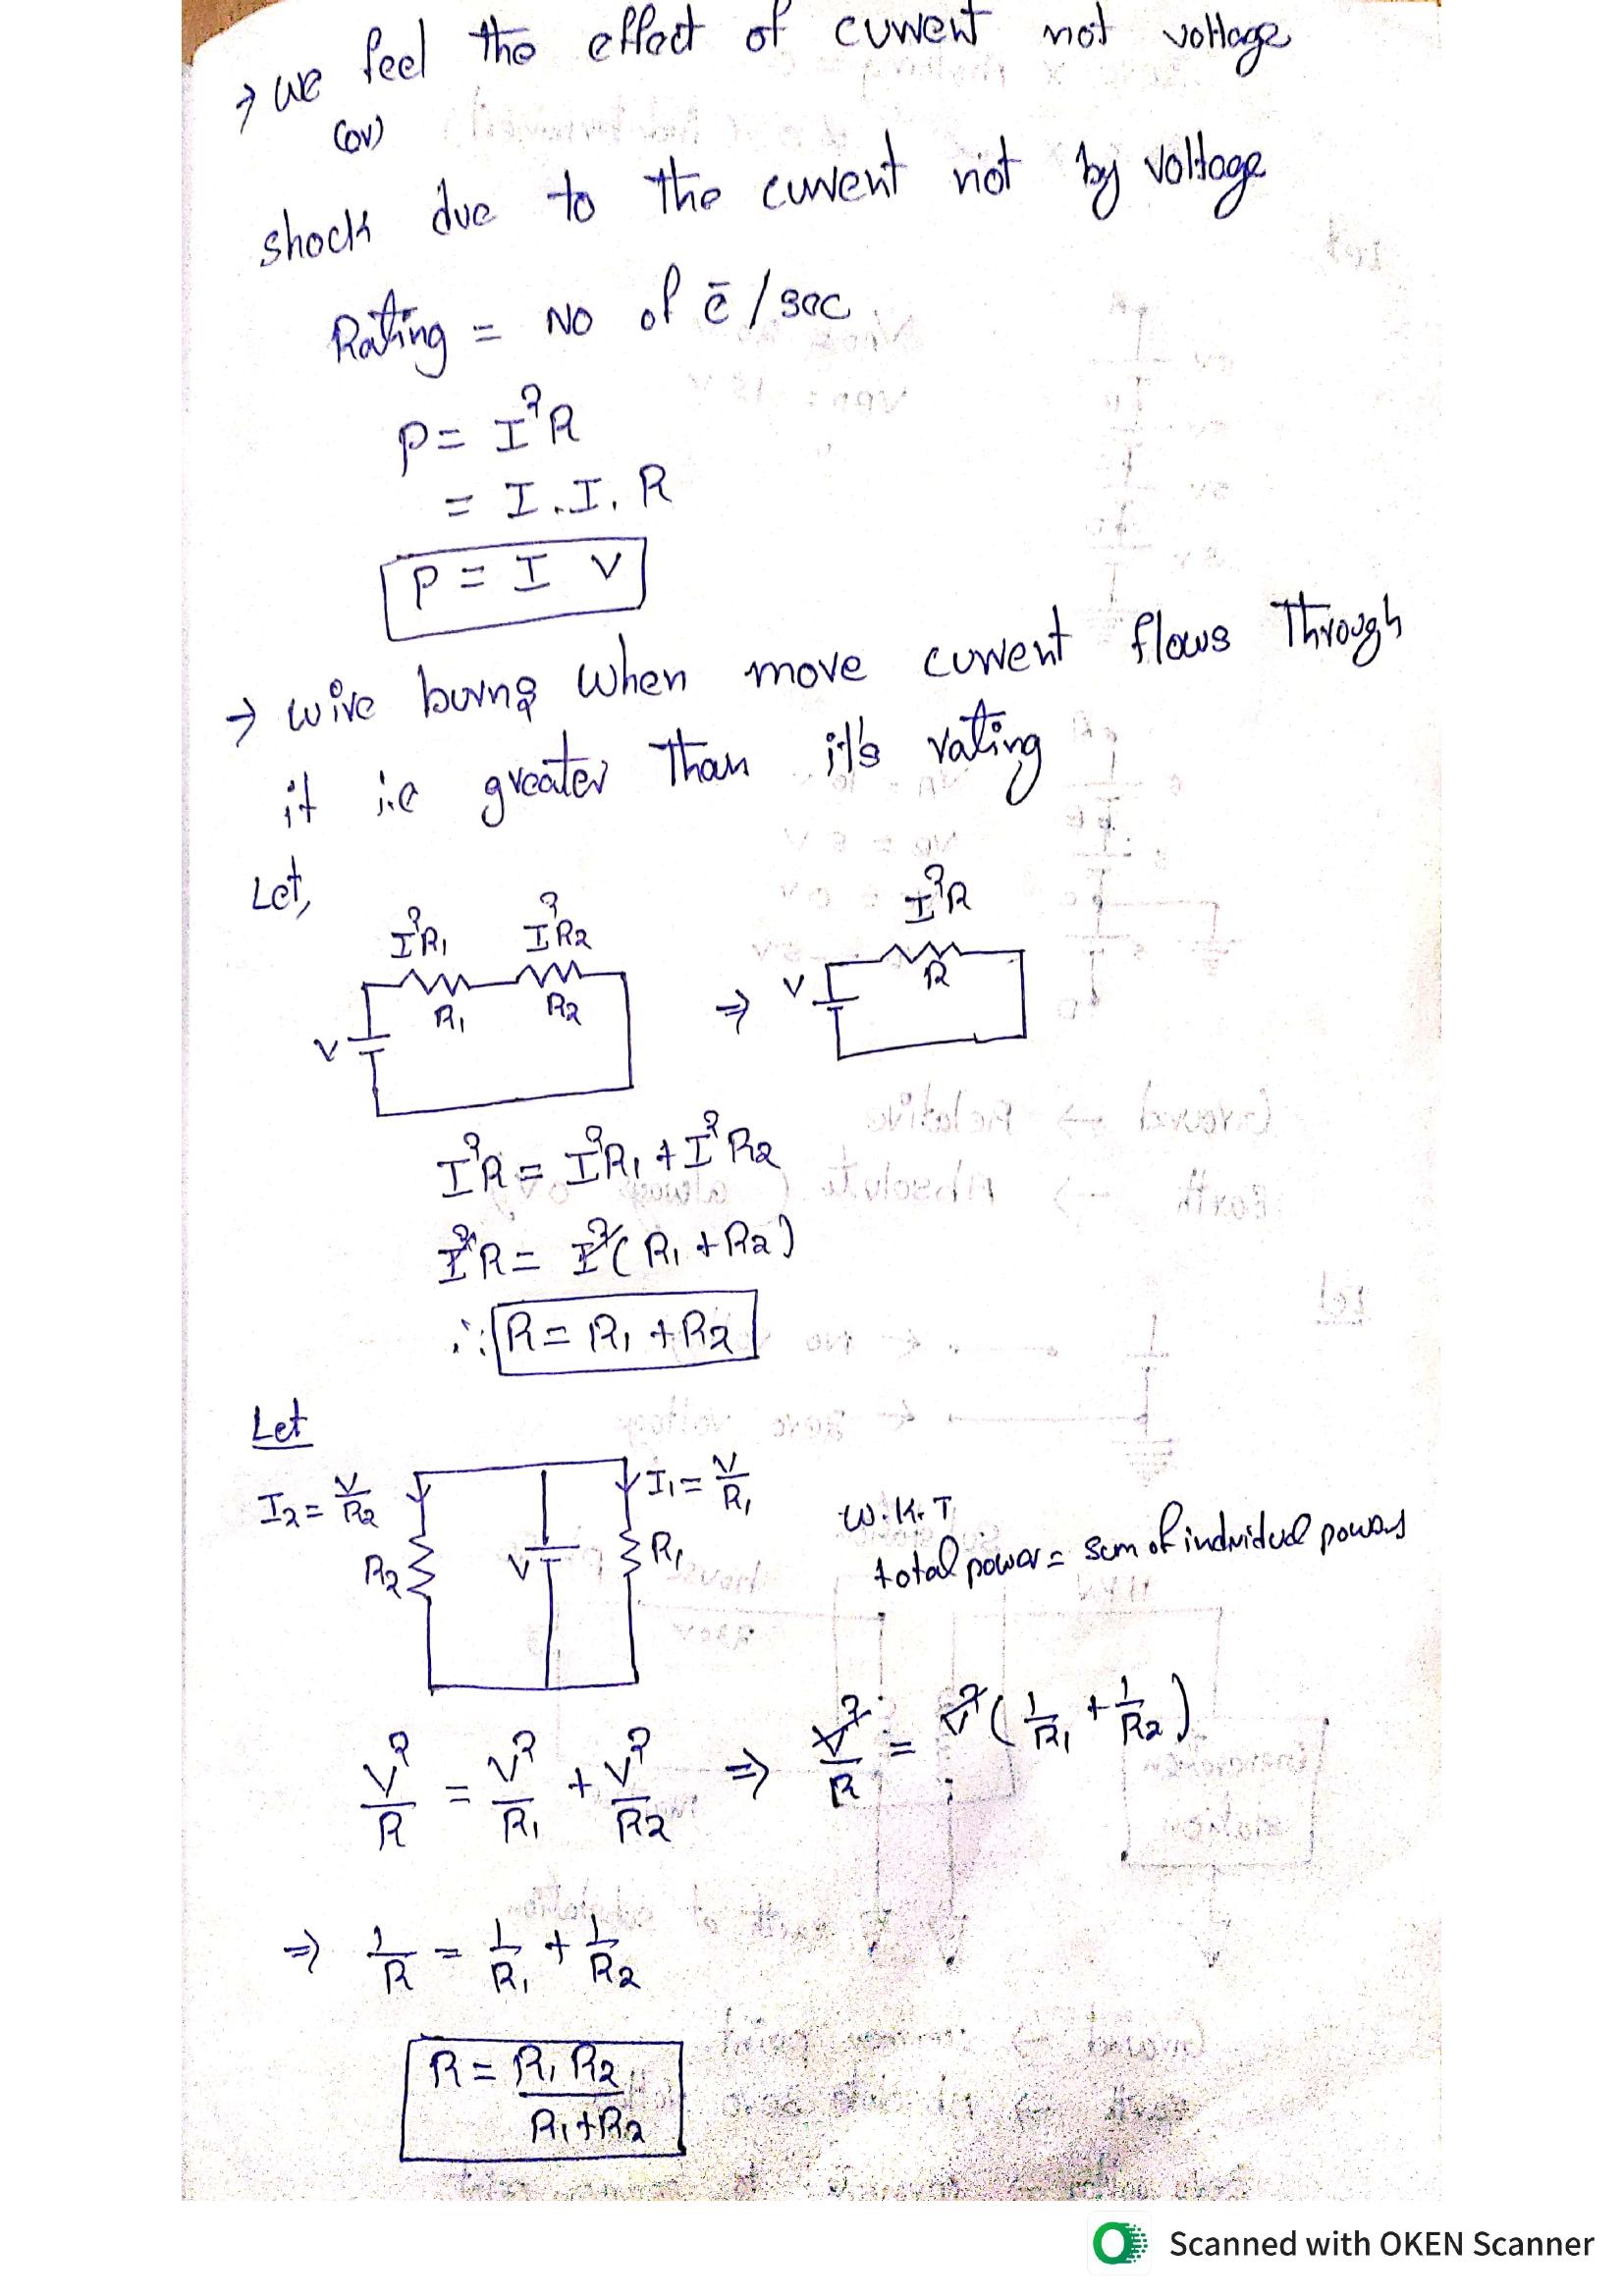 → we feel the effect of current not voltage
(or)
shock due to the current not by voltage
Rating = No of ē / sec
P = I²R
= I . I . R
P = I V
→ wire burns when more current flows through
it i.e greater than it's rating
Let,
I²R₁ I²R₂ I²R
V R₁ R₂ ⇒ V R
I²R = I²R₁ + I²R₂
I²R = I²(R₁ + R₂)
∴ R = R₁ + R₂
Let
I₂ = V/R₂ I₁ = V/R₁
R₂ V R₁
W.K.T
total power = sum of individual powers
V²/R = V²/R₁ + V²/R₂ ⇒ V²/R = V²(1/R₁ + 1/R₂)
⇒ 1/R = 1/R₁ + 1/R₂
R = R₁ R₂ / R₁+R₂
Scanned with OKEN Scanner